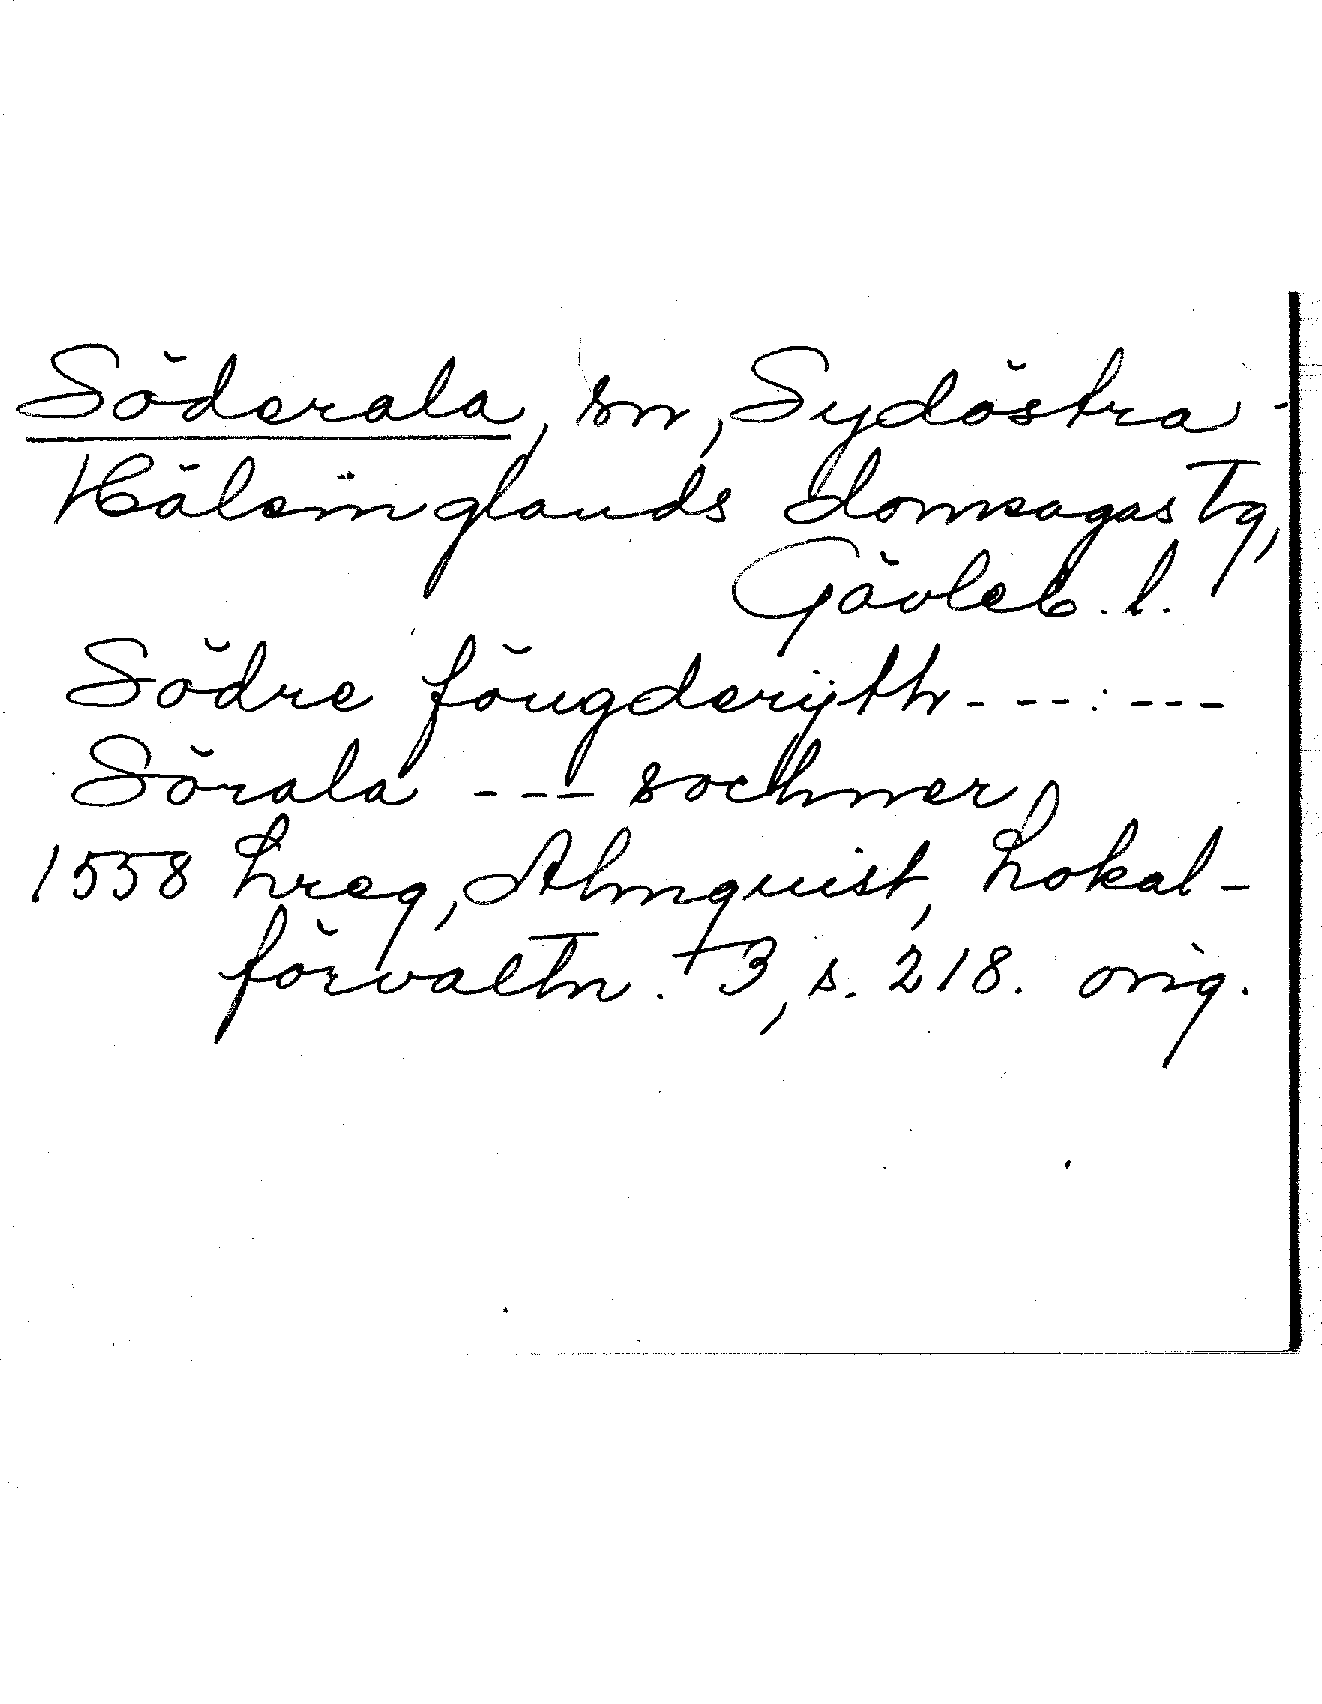 Söderala, sn, Sydöstra
Hälsinglands domsagas Tg,
Gävleb. l.
Södre föugderijth - - - : - - -
Sörala - - - sochner
1558 Lreg, Almquist, Lokal-
förvaltn. † 3, s. 218. orig.